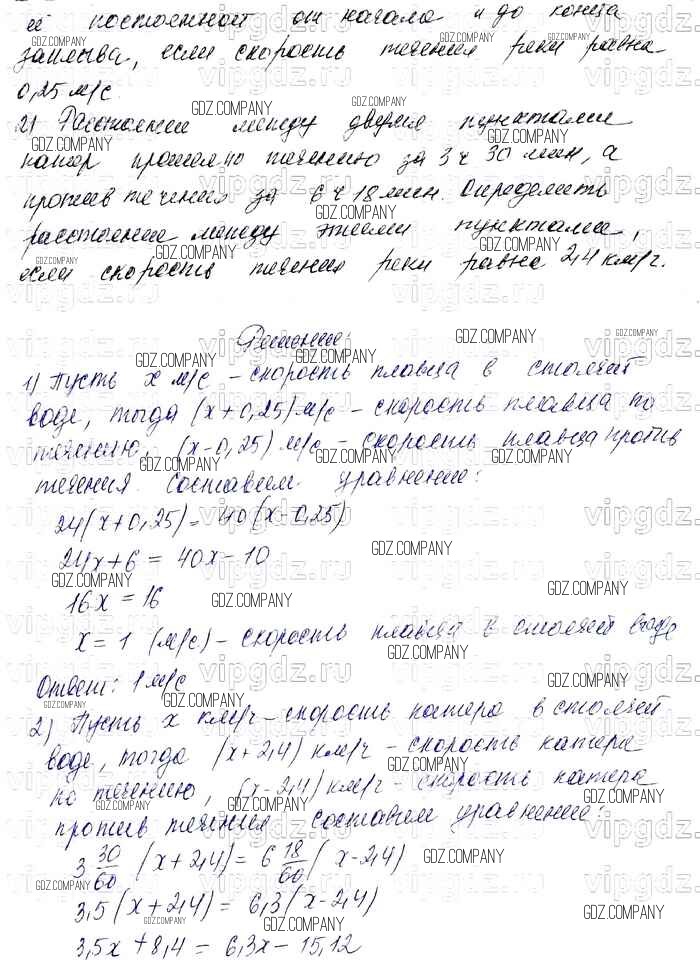 её постоянной от начала и до конца
заплыва, если скорость течения реки равна
0,25 м/с.
2) Расстояние между двумя пунктами
катер прошел по течению за 3 ч 30 мин, а
против течения за 6 ч 18 мин. Определить
расстояние между этими пунктами,
если скорость течения реки равна 2,4 км/ч.
Решение:
1) Пусть x м/с - скорость пловца в стоячей
воде, тогда (x+0,25) м/с - скорость пловца по
течению, (x-0,25) м/с - скорость пловца против
течения. Составим уравнение:
24(x+0,25) = 40(x-0,25)
24x+6 = 40x-10
16x = 16
x = 1 (м/с) - скорость пловца в стоячей воде
Ответ: 1 м/с
2) Пусть x км/ч - скорость катера в стоячей
воде, тогда (x+2,4) км/ч - скорость катера
по течению, (x-2,4) км/ч - скорость катера
против течения. Составим уравнение:
3 30/60 (x+2,4) = 6 18/60 (x-2,4)
3,5(x+2,4) = 6,3(x-2,4)
3,5x+8,4 = 6,3x-15,12